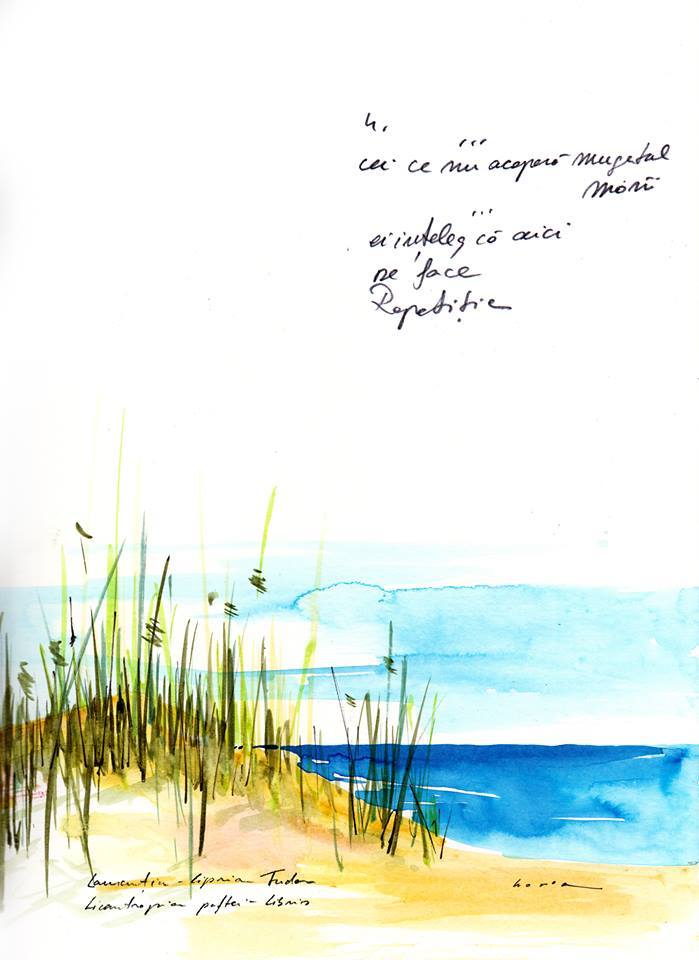 4.
...
cei ce nu acoperă mugetul
mării
...
ei înțeleg că aici
se face
Repetiție
Laurențiu-Ciprian Tudor
Licantropia
horia